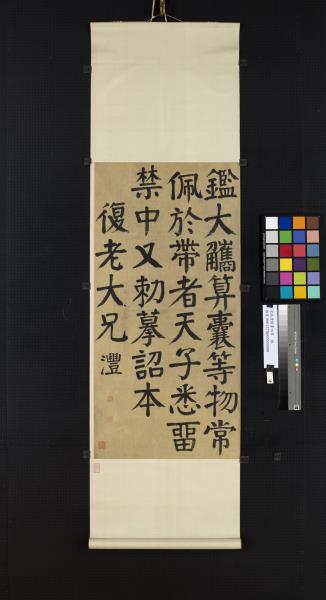 鑑大觿算囊等物常
佩於帶者天子悉畱
禁中又勑摹詔本
復老大兄 灃